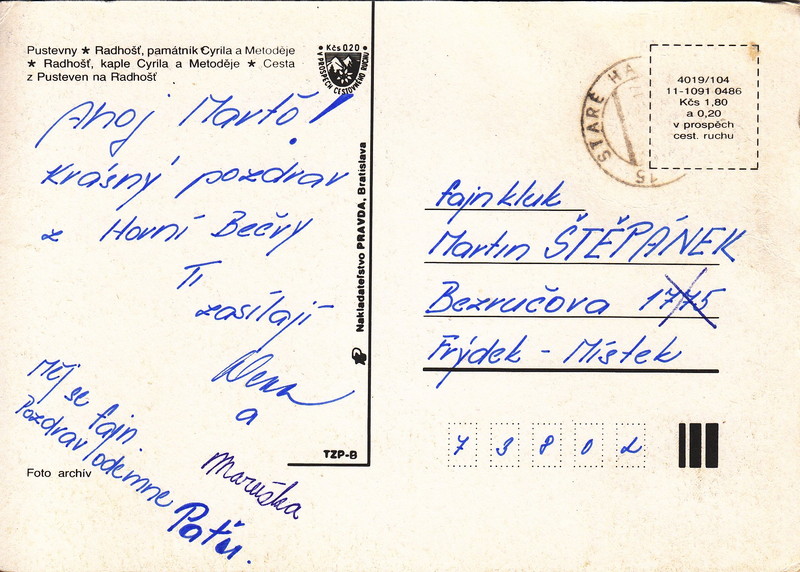 Pustevny ★ Radhošť, památník Cyrila a Metoděje
★ Radhošť, kaple Cyrila a Metoděje ★ Cesta
z Pusteven na Radhošť
Kčs 0.20
V PROSPĚCH CESTOVNÉHO RUCHU
Ahoj Martő!
Krásný pozdrav
z Horní Bečvy
Ti
zasílají
a
Maruška
Měj se fajn.
Pozdrav odemne
Paťu.
Foto archiv
TZP-B
Nakladateľstvo PRAVDA, Bratislava
STARÉ HA
15
4019/104
11-1091 0486
Kčs 1,80
a 0,20
v prospěch
cest. ruchu
fajn kluk
Martin ŠTĚPÁNEK
Bezručova 1775
Frýdek - Místek
7 3 8 0 2